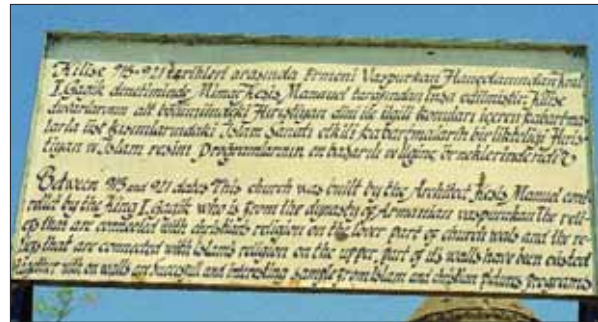 Kilise 915-921 tarihleri arasında Ermeni Vaspurkan Hanedanından kral
I. Gagik denetiminde Mimar Keşiş Manauel tarafından inşa edilmiştir. Kilise
duvarlarının alt bölümündeki Hıristiyan dini ile ilgili konuları içeren kabartma-
larla üst kısımlarındaki İslam Sanatı etkili kabartmaların birlikteliği Hıris-
tiyan ve İslam resim programlarının en başarılı ve ilginç örneklerindendir
Between 915 and 921 dates This church was built by the Architect Keşiş Manuel cont-
rolled by the King I. Gagik who is from the dynasty of Armanian vaspurkan The reli-
ep that are connected with christians religion on the lover part of church wals and the re-
liep that are connected with islam's religion on the upper, part of its walls have been existed
together with on walls are Succesful and interesting sample from Islam and christian programs